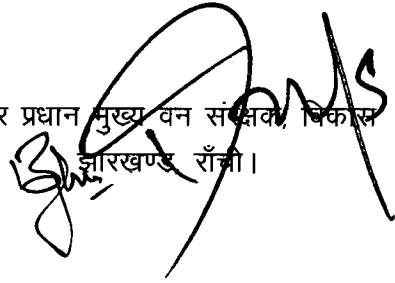 र प्रधान मुख्य वन संरक्षक, विकास
झारखण्ड, राँची।